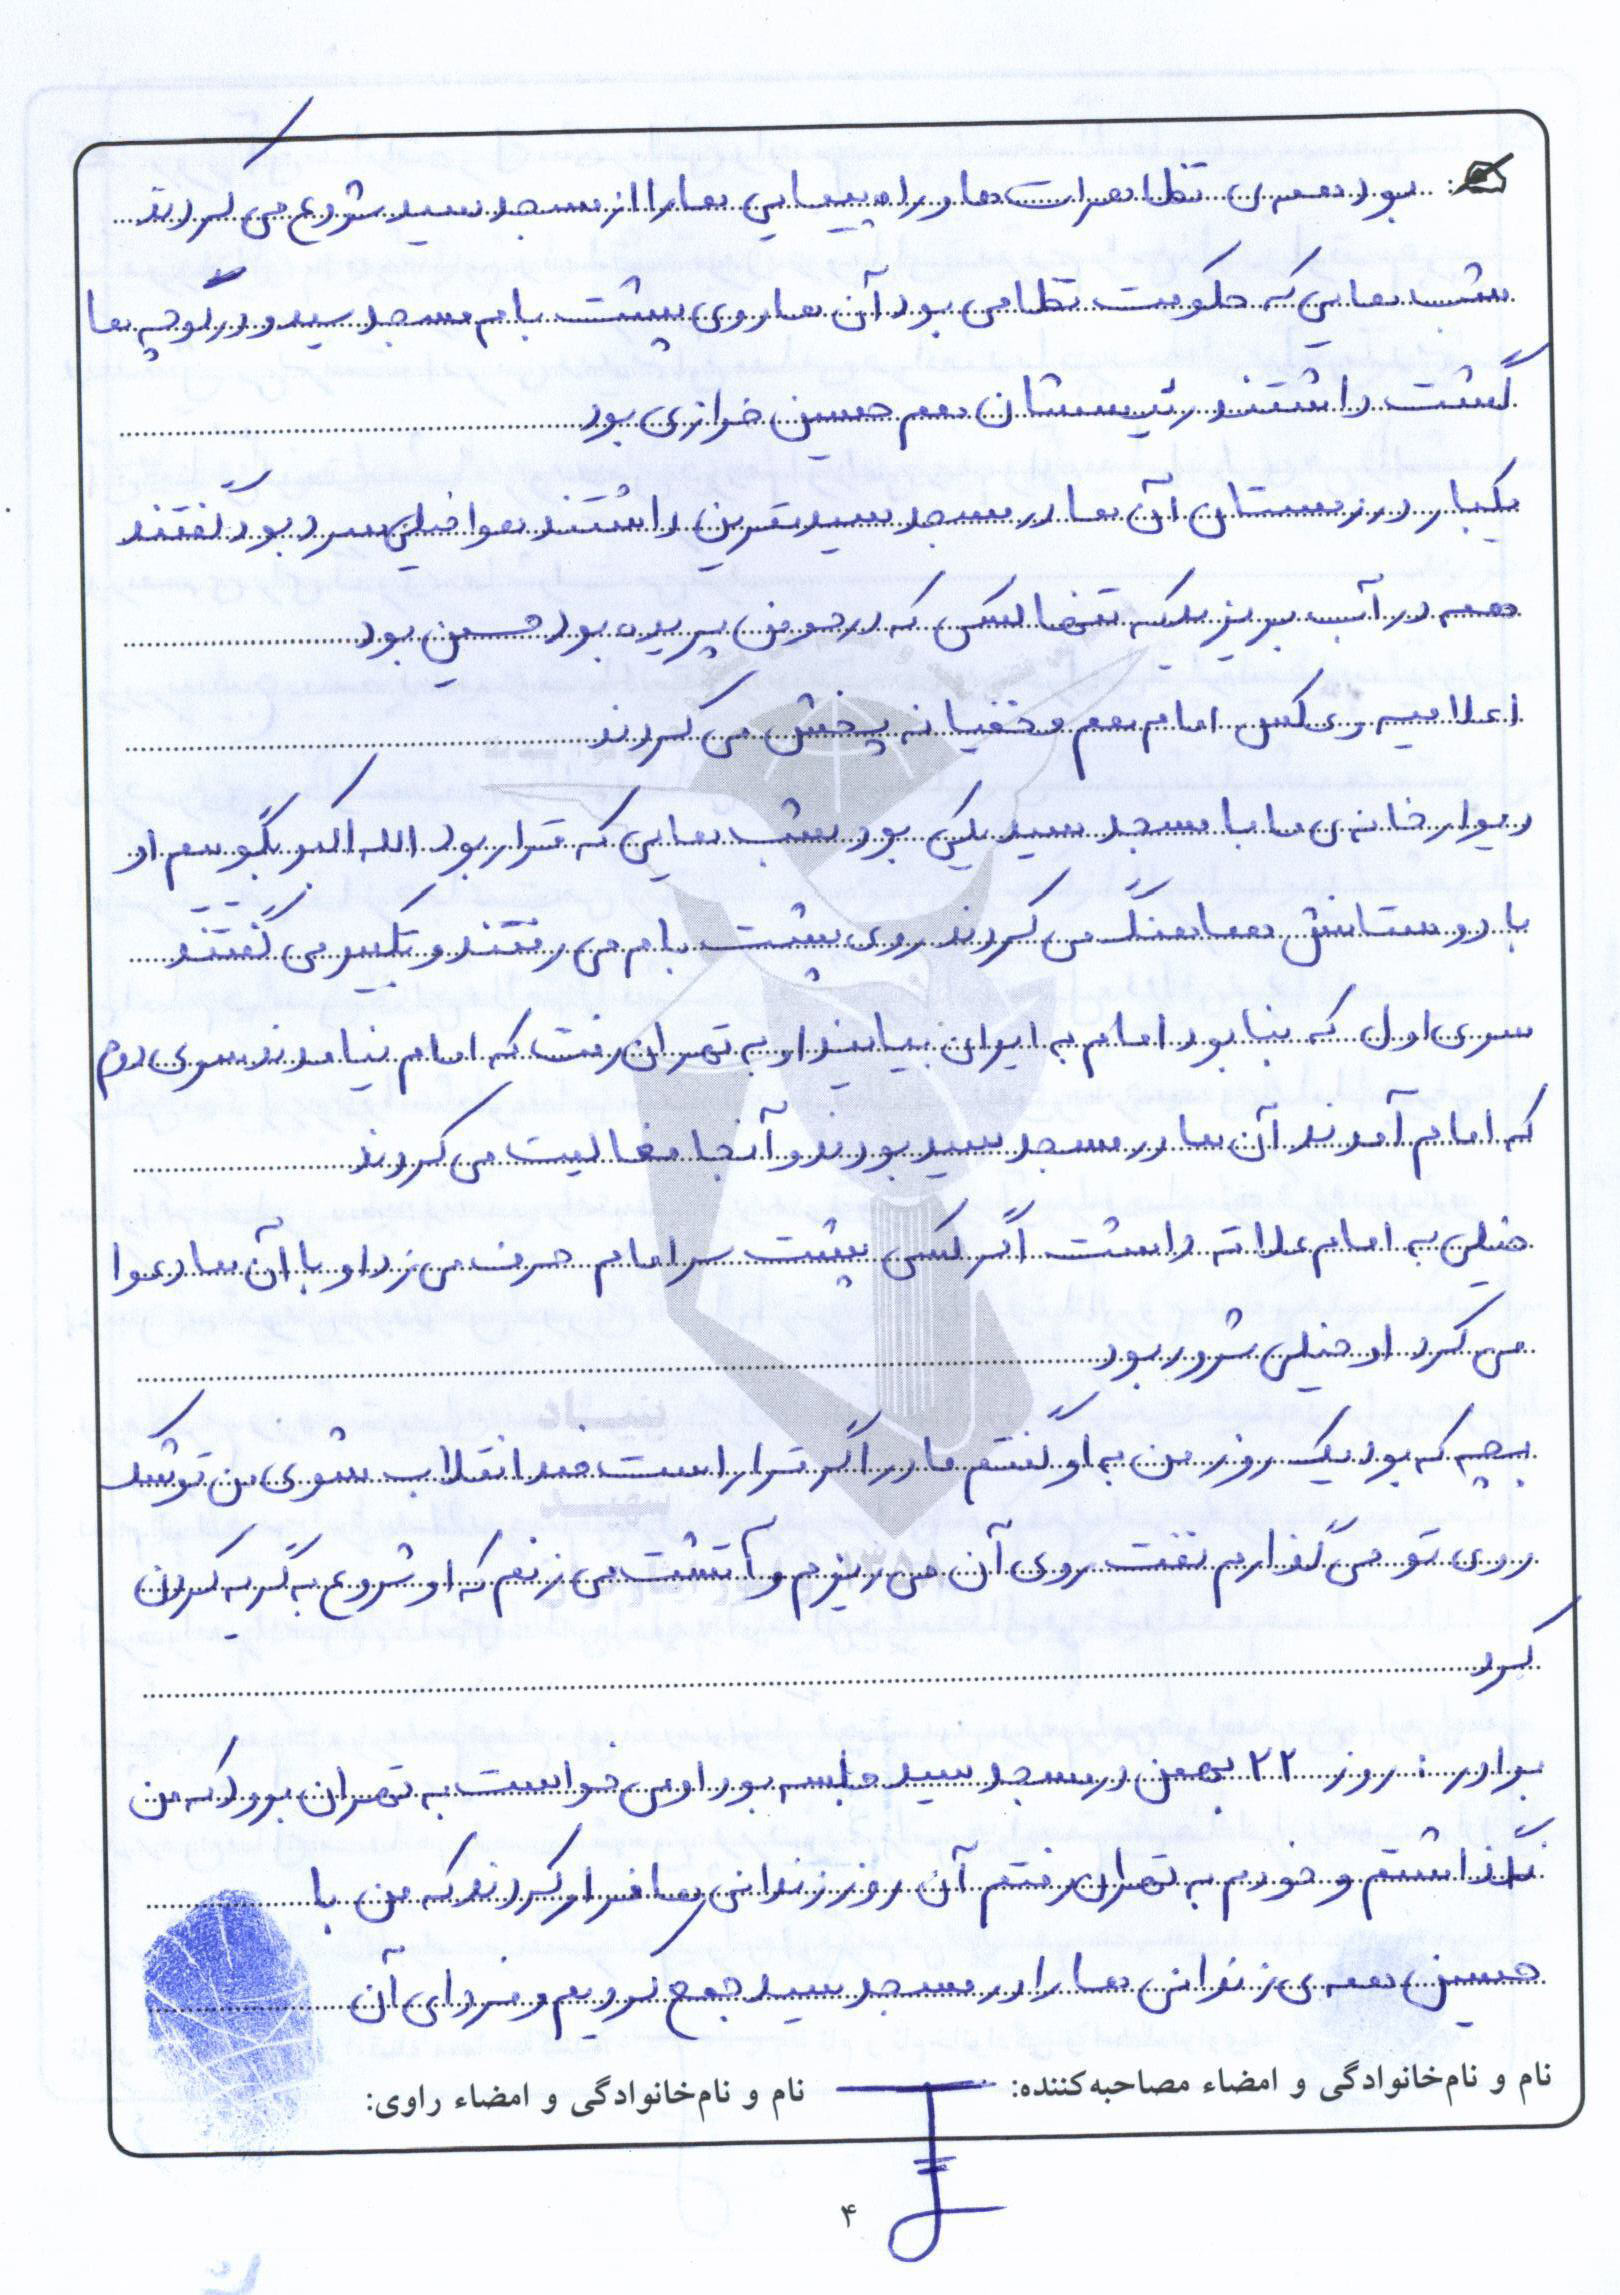 بود همه ی تظاهرات ها و راه پیمایی ها را از مسجد سید شروع می کردند
شب هایی که حکومت نظامی بود آن ها روی پشت بام مسجد سید و در کوچه ها
گشت داشتند رئیسشان هم حسین خرازی بود
یکبار در زمستان آن ها در مسجد سید تمرین داشتند هوا خیلی سرد بود گفتند
همه در آب بپرید که تنها کسی که در حوض پریده بود حسین بود
اعلامیه ی عکس امام هم مخفیانه پخش می کردند
دیوار خانه ی ما با مسجد سید یکی بود شب هایی که قرار بود الله اکبر بگویم او
با دوستانش هماهنگ می کردند روی پشت بام می رفتند و تکبیر می گفتند
سری اول که بنا بود امام به ایران بیایند او به تهران رفت که امام نیامدند سری دوم
که امام آمدند آن ها در مسجد سید بودند و آنجا فعالیت می کردند
خیلی به امام علاقه داشت اگر کسی پشت سر امام حرف می زد او با آن ها دعوا
می کرد او خیلی شرور بود
بچه که بود یک روز من به او گفتم مادر اگر قرار است ضد انقلاب شوی من تو تشک
روی تو می گذارم نفت روی آن می ریزم و آتشت می زنم که او شروع به گریه کردن
کرد
برادر : روز ۲۲ بهمن در مسجد سید جلسه بود او می خواست به تهران برود که من
نگذاشتم و خودم به تهران رفتم آن روز زندانی ها فرار کردند که من با
حسین همه ی زندانی ها را در مسجد سید جمع کردیم و فردای آن
نام و نام‌خانوادگی و امضاء مصاحبه‌کننده: نام و نام‌خانوادگی و امضاء راوی:
۴